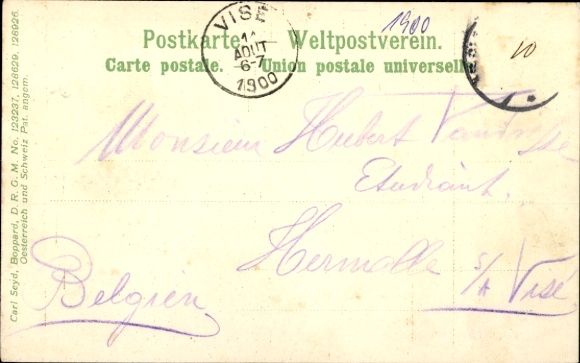 1900
Postkarte. Weltpostverein.
Carte postale. Union postale universelle
VISÉ
11
AOUT
6-7
1900
10
Monsieur Hubert
Etudiant.
Hermalle s/A Visé
Belgien
Carl Seyd, Boppard, D. R. G. M. No. 123237, 128629, 128926.
Oesterreich und Schweiz Pat. angem.